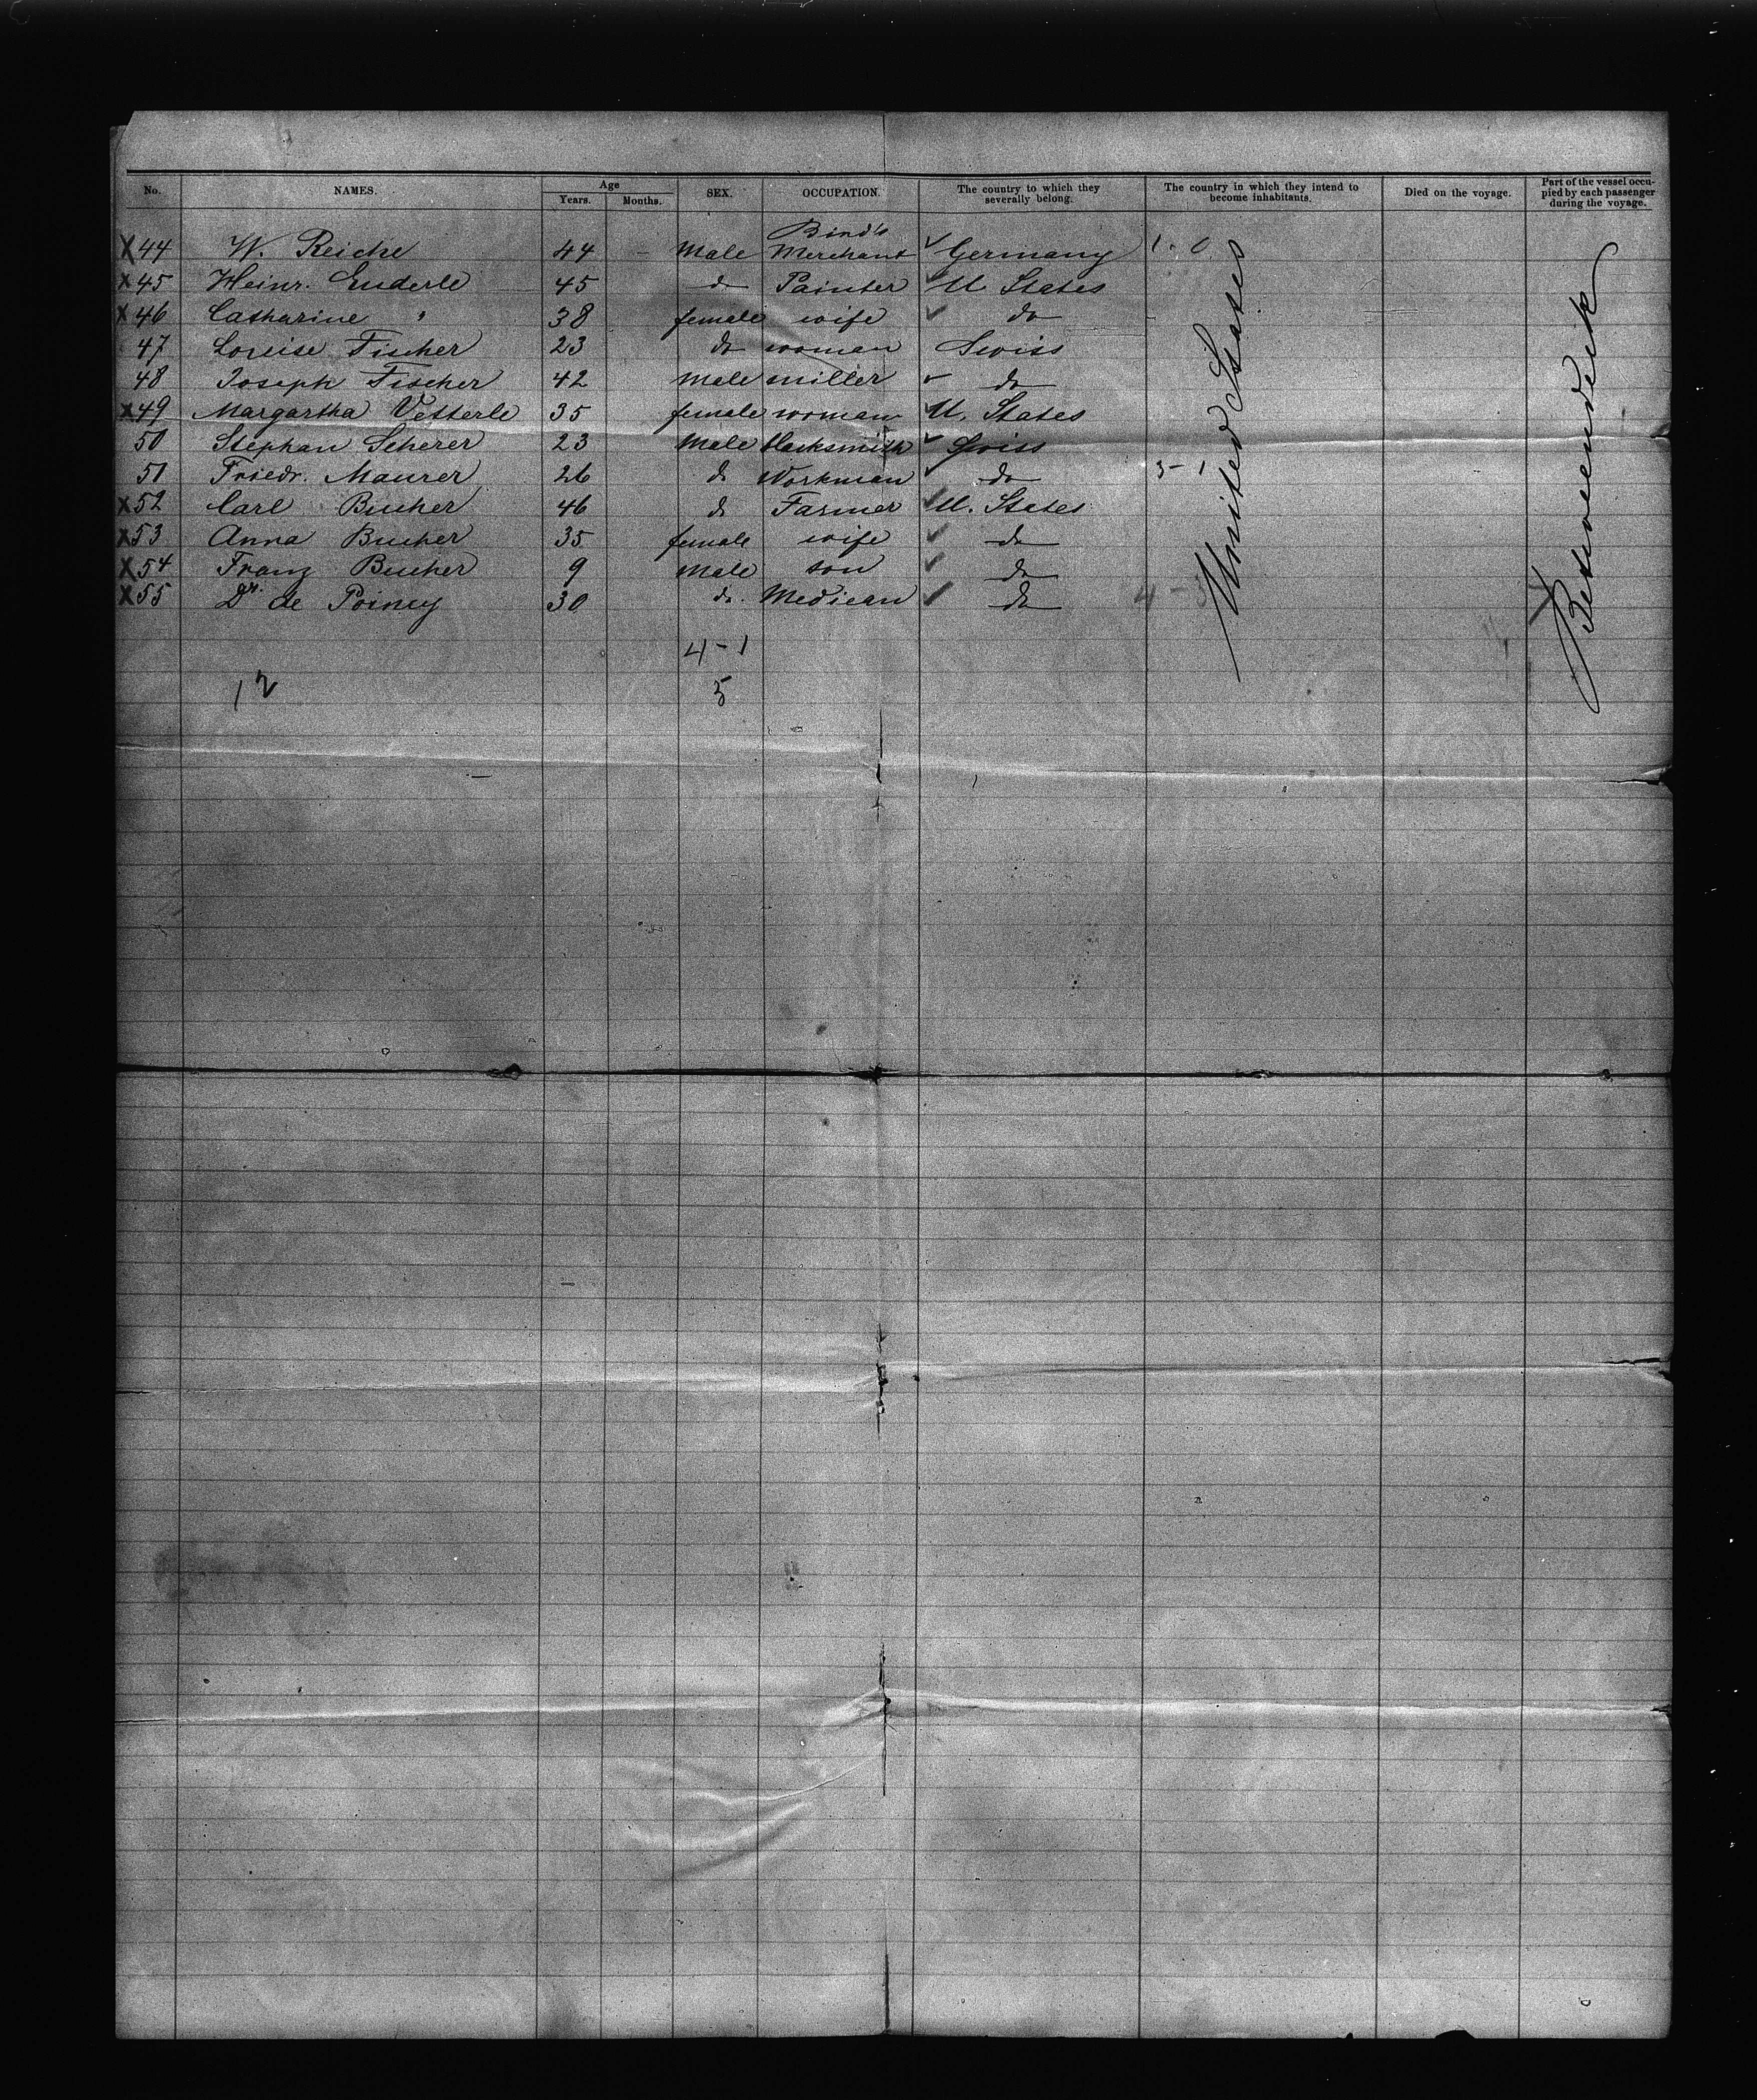 No. NAMES. Age Years. Months. SEX. OCCUPATION. The country to which they severally belong. The country in which they intend to become inhabitants. Died on the voyage. Part of the vessel occupied by each passenger during the voyage.
Bird's
X 44 W. Reiche 44 – Male Merchant ✓ Germany 1. 0
X 45 Heinr. Enderle 45 do Painter ✓ U. States
X 46 Catharine " 38 female wife ✓ do
47 Louise Fischer 23 do woman Swiss
48 Joseph Fischer 42 Male miller ✓ do
X 49 Margartha Vetterle 35 female woman ✓ U. States
50 Stephan Scherer 23 Male blacksmith ✓ Swiss
51 Friedr. Maurer 26 do Workman ✓ do 3-1
X 52 Carl Bucher 46 do Farmer ✓ U. States
X 53 Anna Bucher 35 female wife ✓ do
X 54 Franz Bucher 9 Male son ✓ do
X 55 Dr. de Poincy 30 do. Medican ✓ do 4-3
United States
X Betweendeck
4-1
12 5